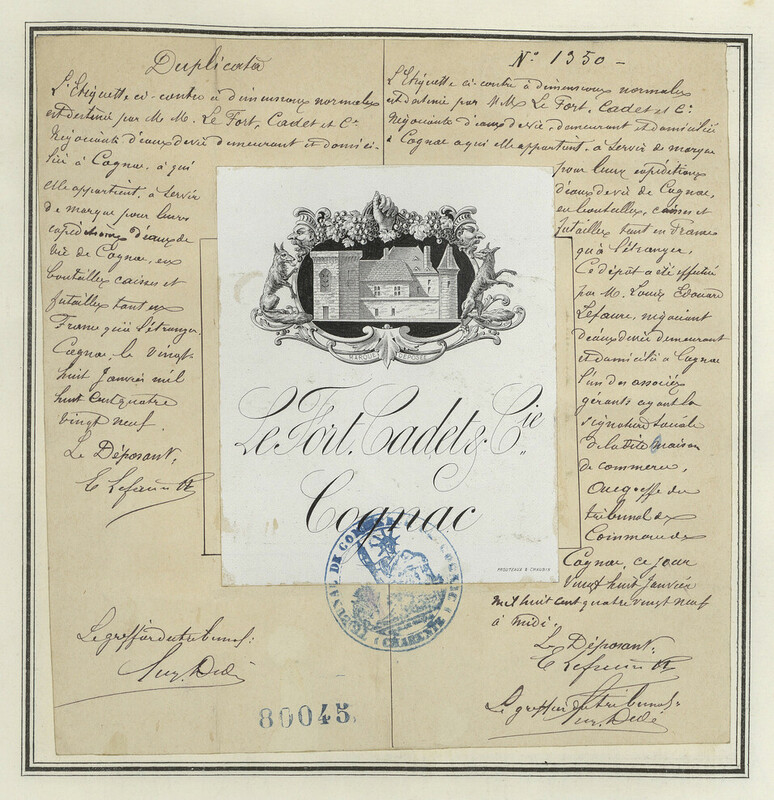 Duplicata
L'Etiquette ci-contre à dimensions normales
est destinée par M M. Le Fort, Cadet et Cie
Négociants d'eaux de vie demeurant et domici-
liés à Cognac, à qui
elle appartient, à servir
de marque pour leurs
expéditions d'eaux de
vie de Cognac, en
bouteilles caisses et
futailles tant en
France qu'à l'étranger.
Cognac, le vingt
huit Janvier mil
huit cent quatre
vingt neuf.
Le Déposant,
E Lefaure
Le greffier du tribunal:
No 1350 -
L'Etiquette ci-contre à dimensions normales
est destinée par M M. Le Fort, Cadet et Cie
Négociants d'eaux de vie, demeurant et domiciliés
à Cognac à qui elle appartient, à servir de marque
pour leurs expéditions
d'eaux de vie de Cognac,
en bouteilles, caisses et
futailles tant en France
qu'à l'étranger.
Ce dépôt a été effectué
par M. Louis Edouard
Lefaure, négociant
d'eaux de vie demeurant
et domicilié à Cognac
l'un des associés
gérants ayant la
signature sociale
de la dite maison
de commerce,
au greffe du
tribunal de
Commerce de
Cognac, ce jour
vingt huit Janvier
mil huit cent quatre vingt neuf
à midi.
Le Déposant,
E Lefaure
Le greffier du tribunal:
MARQUE DÉPOSÉE
Le Fort, Cadet & Cie
Cognac
PROUTEAUX & CHAUBIN
TRIBUNAL DE COMMERCE COGNAC
CHARENTE
80045